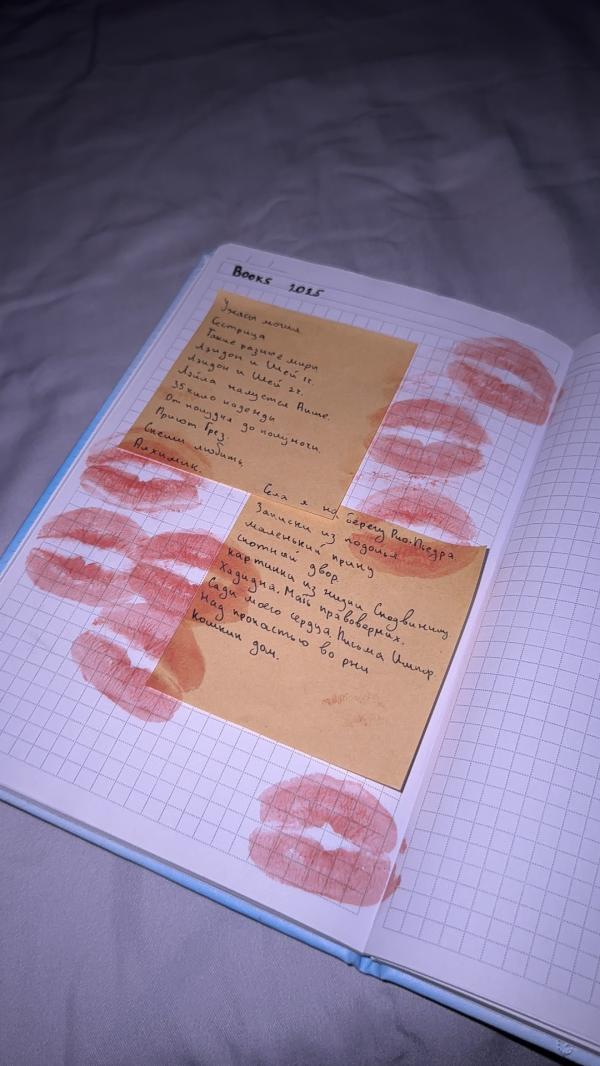 Books 2025
Ужасы ночи
Сестрица
Такие разные миры
Лэндон и Шей 1ч.
Лэндон и Шей 2ч.
Лэйла Аише.
35 кило надежды
От полудня до полуночи.
Приют Грёз.
Спеши любить,
Алхимик.
Села я на берегу Рио-Пьедра.
Записки из подолья
маленький принц
скотный двор.
картинки из жизни Сподвижниц
Хадиджа. Мать правоверных.
Сади моего сердца. Письма Импер.
Над пропастью во ржи
кошкин дом.